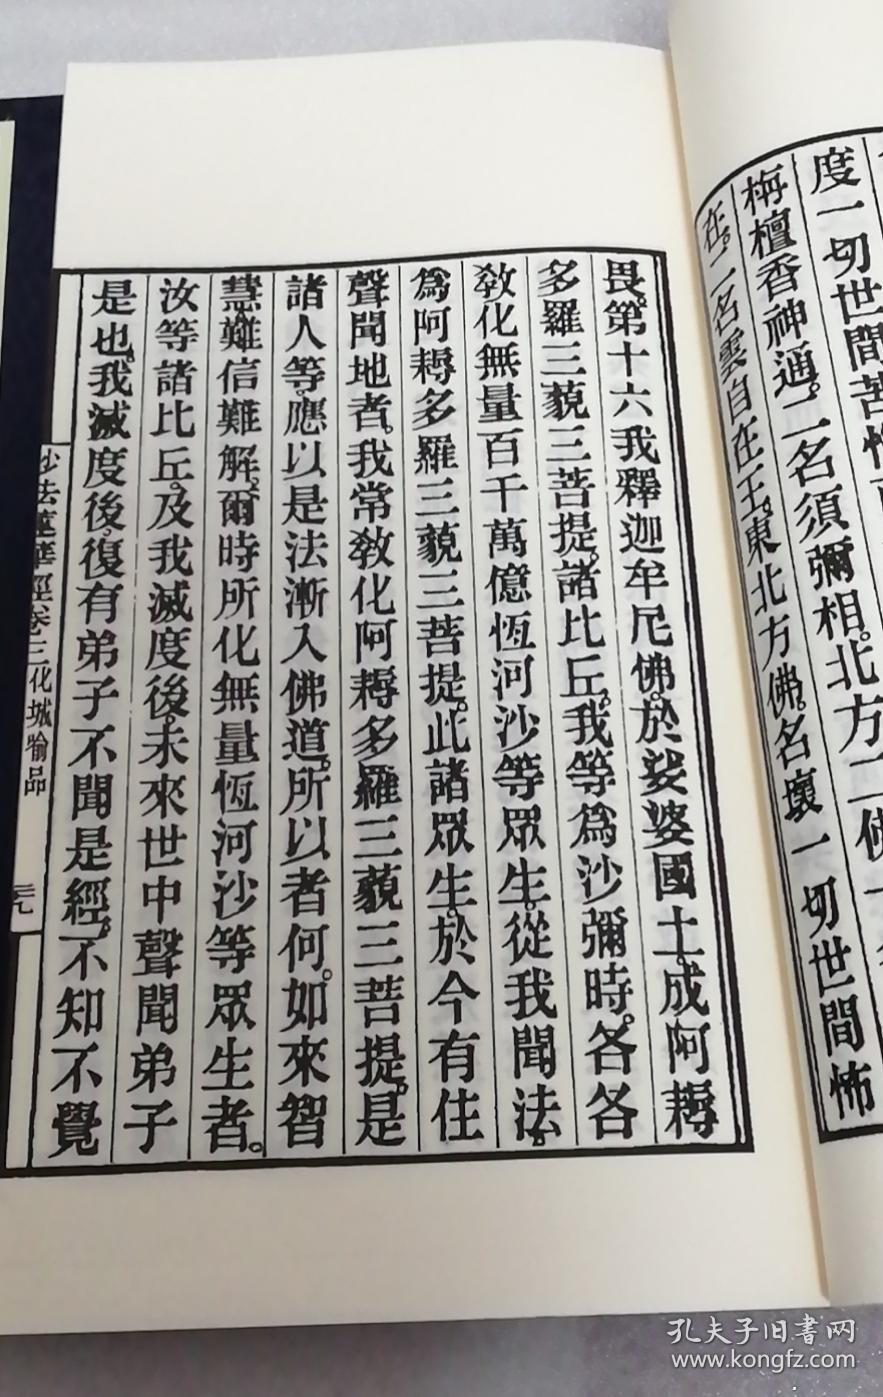 度一切世間苦
栴檀香神通。二名須彌相。北方二佛
在。二名雲自在王。東北方佛。名壞一切世間怖
畏。第十六我釋迦牟尼佛。於娑婆國土。成阿耨
多羅三藐三菩提。諸比丘。我等為沙彌時。各各
教化無量百千萬億恆河沙等眾生。從我聞法。
為阿耨多羅三藐三菩提。此諸眾生。於今有住
聲聞地者。我常教化阿耨多羅三藐三菩提。是
諸人等。應以是法漸入佛道。所以者何。如來智
慧。難信難解。爾時所化無量恆河沙等眾生者。
汝等諸比丘。及我滅度後。未來世中聲聞弟子
是也。我滅度後。復有弟子不聞是經。不知不覺
妙法蓮華經卷三化城喻品
孔夫子旧書网
www.kongfz.com